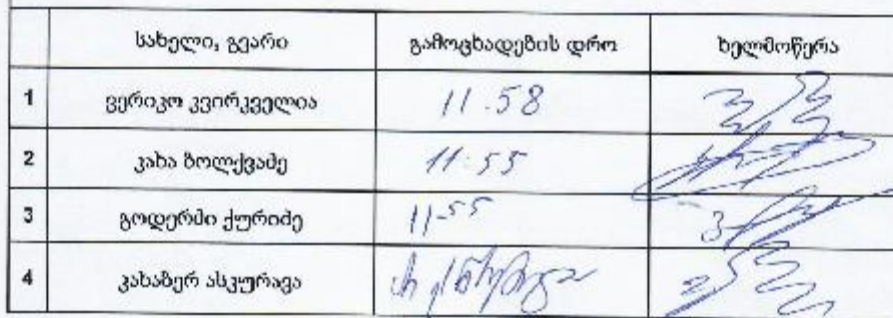 სახელი, გვარი გამოცხადების დრო ხელმოწერა
1 ვერიკო კვირკველია 11.58
2 კახა ბოლქვაძე 11:55
3 გოდერძი ქურიძე 11-55
4 კახაბერ ასკურავა